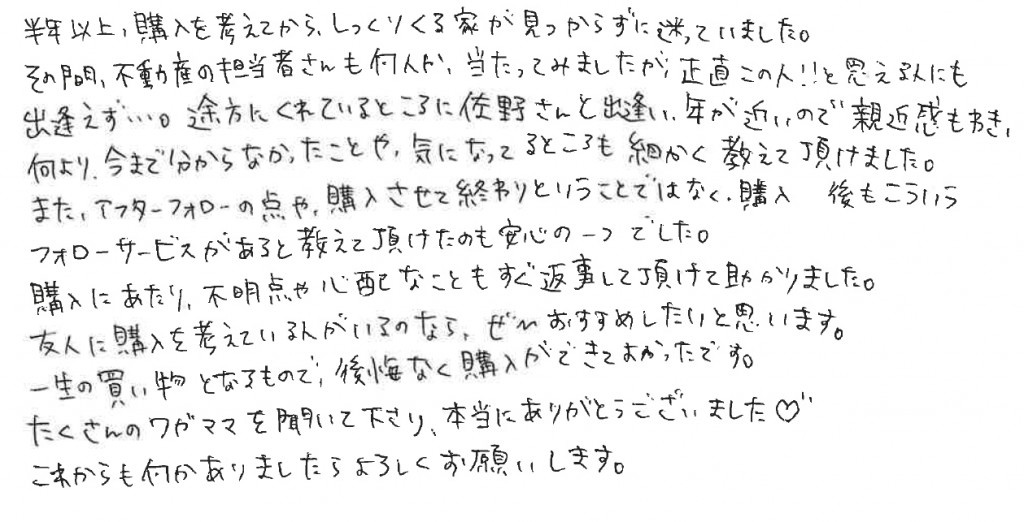 半年以上、購入を考えてから、しっくりくる家が見つからずに迷っていました。
その間、不動産の担当者さんも何人か、当たってみましたが、正直この人!!と思える人にも
出逢えず…。途方にくれているところに佐野さんと出逢い、年が近いので親近感もわき、
何より、今まで分からなかったことや、気になってるところも細かく教えて頂けました。
また、アフターフォローの点や、購入させて終わりということではなく、購入 後もこういう
フォローサービスがあると教えて頂けたのも安心の一つでした。
購入にあたり、不明点や心配なこともすぐ返事して頂けて助かりました。
友人に購入を考えている人がいるのなら、ぜひおすすめしたいと思います。
一生の買い物となるもので、後悔なく購入ができてよかったです。
たくさんのワガママを聞いて下さり、本当にありがとうございました♡
これからも何かありましたらよろしくお願いします。